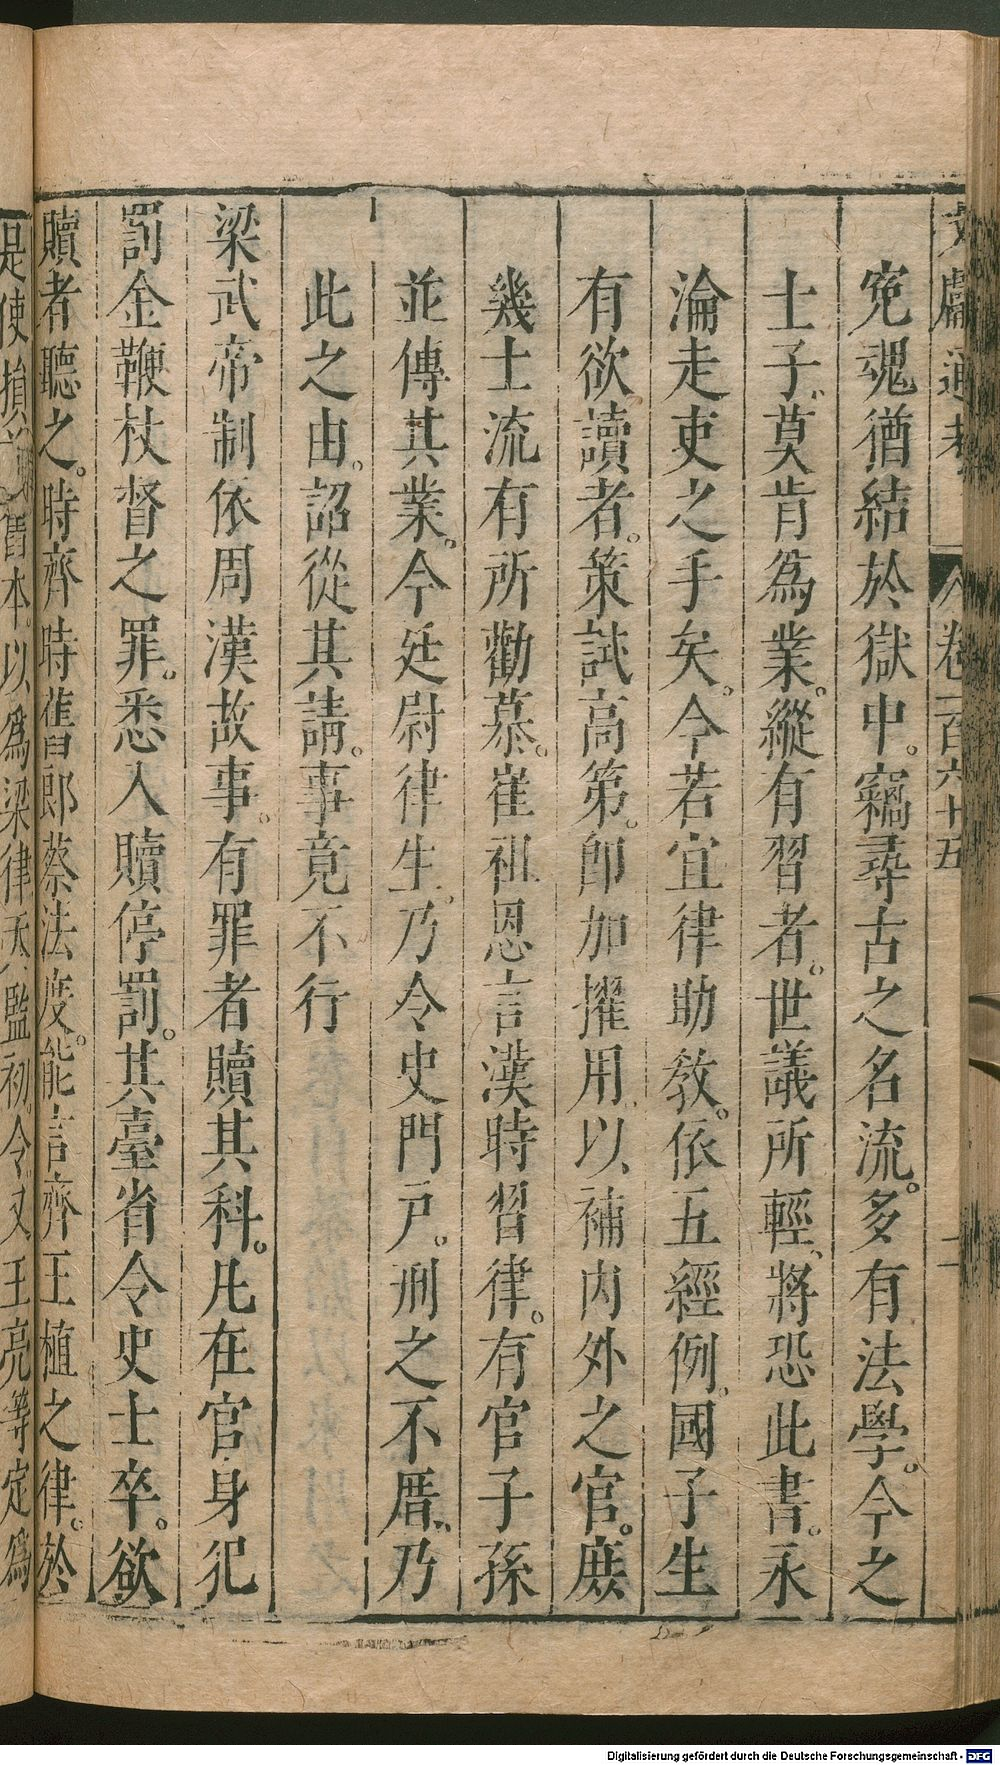 文獻通考 卷一百六十五 二
寃魂猶結於獄中。竊尋古之名流。多有法學。今之
士子。莫肯爲業。縱有習者。世議所輕、將恐此書。永
淪走吏之手矣。今若宜律助敎。依五經例。國子生
有欲讀者。策試高第。卽加擢用。以補內外之官。庶
幾士流有所勸慕。崔祖恩言漢時習律。有官子孫
並傳其業。今廷尉律生。乃令史門戸。刑之不厝、乃
此之由。詔從其請。事竟不行
梁武帝制依周漢故事。有罪者贖其科。凡在官身犯
罰金鞭杖督之罪。悉入贖停罰。其臺省令史士卒。欲
贖者聽之。時齊時舊郎蔡法度。能言齊王植之律。於
是使損益舊本。以爲梁律天監初。令又王亮等定爲
Digitalisierung gefördert durch die Deutsche Forschungsgemeinschaft - DFG